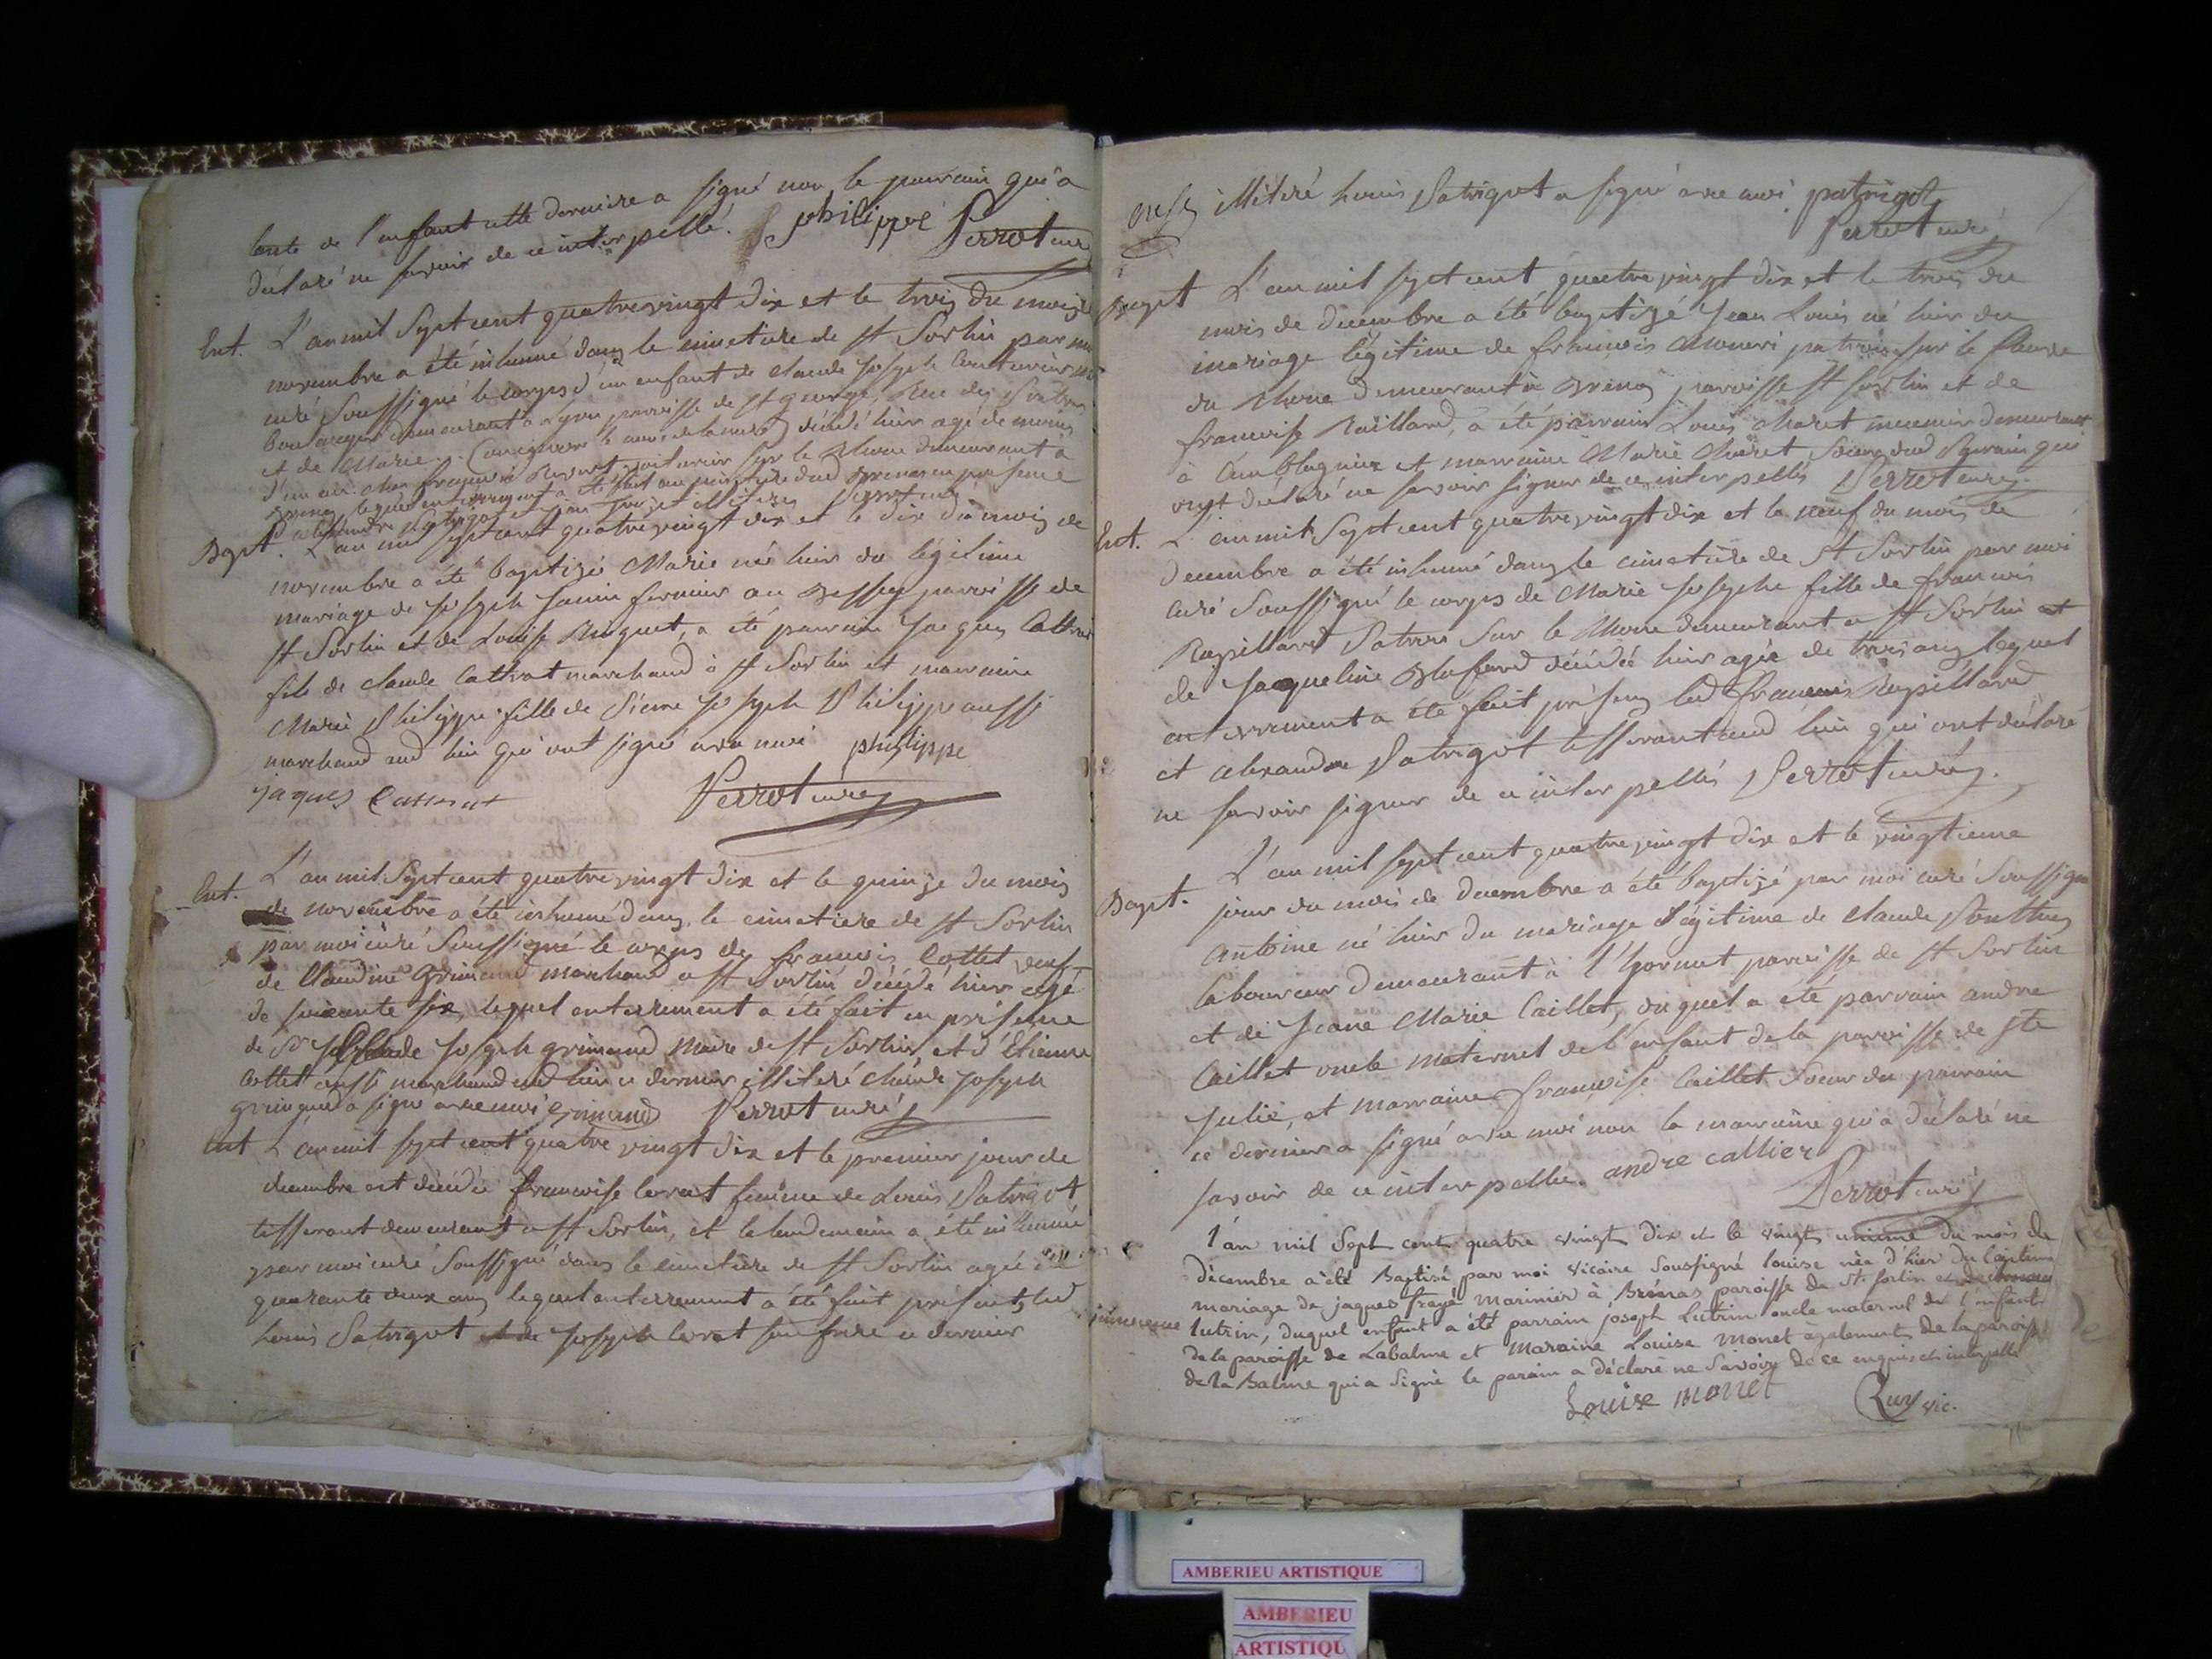 tante de l'enfant cette derniere a signé non le parrain qui a
déclaré ne savoir de ce interpellé. philippe Perrot curé
Ent. L'an mil sept cent quatre vingt dix et le trois du mois de
novembre a été inhumé dans le cimetiere de st Sorlin par moi
curé soussigné le corps d'un enfant de claude joseph
demeurant a Lyon paroisse de st george, Rue des
et de Marie décédé hier agé de moins
d'un an françois voiturier sur le Rhone demeurant à
lequel enterrement a été fait en presence
illitérés Perrot curé
Bapt. L'an mil sept cent quatre vingt dix et le dix du mois de
novembre a été baptizée Marie née hier du légitime
mariage de joseph janin fermier au Bessey paroisse de
st Sorlin et de Louise Ruquet, a été parrain jacques Cattrat
fils de claude Cattrat marchand à st Sorlin et marraine
Marie Philippe fille de Pierre joseph Philippe aussi
marchand aud lieu qui ont signé avec moi philippe
jaques Perrot curé
Ent. L'an mil sept cent quatre vingt dix et le quinze du mois
de novembre a été inhumé dans le cimetiere de st Sorlin
par moi curé soussigné le corps de françois Cottet veuf
de Claudine Grimand marchand a st Sorlin décédé hier agé
de soixante six, lequel enterrement a été fait en présence
de Sr joseph grimand Maire de st Sorlin, et d'Etienne
Cottet aussi marchand aud lieu ce dernier illitéré claude joseph
grimand a signé avec moi Grimand Perrot curé
Ent L'an mil sept cent quatre vingt dix et le premier jour de
decembre est décédée françoise levrat femme de Louis Patrigot
tisserant demeurant a st Sorlin, et le lendemain a été inhumée
par moi curé soussigné dans le cimetiere de st Sorlin agée de
quarante deux ans lequel enterrement a été fait présents led
Louis Patrigot et de joseph levrat son frere ce dernier
illitéré Louis Patrigot a signé avec moi. patrigot
Perrot curé
Bapt L'an mil sept cent quatre vingt dix et le trois du
mois de decembre a été baptizé jean Louis né hier du
mariage légitime de françois Monari patron sur le fleuve
du Rhone demeurant à Brenas paroisse st Sorlin et de
françoise Raillard, a été parrain Louis Maret meunier demeurant
à Amblagnieu et marraine Marie Maret soeur dud Parrain qui
ont déclaré ne savoir signer de ce interpellés Perrot curé.
Ent. L'an mil sept cent quatre vingt dix et le neuf du mois de
decembre a été inhumé dans le cimetiere de st Sorlin par moi
curé soussigné le corps de Marie josephe fille de françois
Rapillard Patron sur le Rhone demeurant a st Sorlin et
de jacqueline décédée hier agée de trois ans lequel
enterrement a été fait présens led françois Rapillard
et alexandre Patrigot tisserant aud lieu qui ont déclaré
ne savoir signer de ce interpellés Perrot curé.
L'an mil sept cent quatre vingt dix et le vingtieme
Bapt. jour du mois de decembre a été baptizé par moi curé soussigné
antoine né hier du mariage légitime de claude
laboureur demeurant à l'hormet paroisse de st Sorlin
et de jeane Marie Caillet, duquel a été parrain andre
Caillet oncle maternel de l'enfant de la paroisse de ste
julie, et marraine françoise Caillet soeur du parrain
ce dernier a signé avec moi non la marraine qui a déclaré ne
savoir de ce interpellée. andre callier
Perrot curé
l'an mil sept cent quatre vingt dix et le vingt unieme du mois de
décembre a été Baptisé par moi vicaire soussigné louise née d'hier du légitime
mariage de jaques frayé marinier à Brénas paroisse de St. sorlin et de
lutrin, duquel enfant a été parrain joseph Lutrin oncle maternel de l'enfant
de la paroisse de Labalme et Maraine Louise Monet également de la paroisse
de la Balme qui a signé le parain a déclaré ne savoir de ce enquis et interpellé
Louise monet vic.
AMBERIEU ARTISTIQUE
AMBERIEU
ARTISTIQU